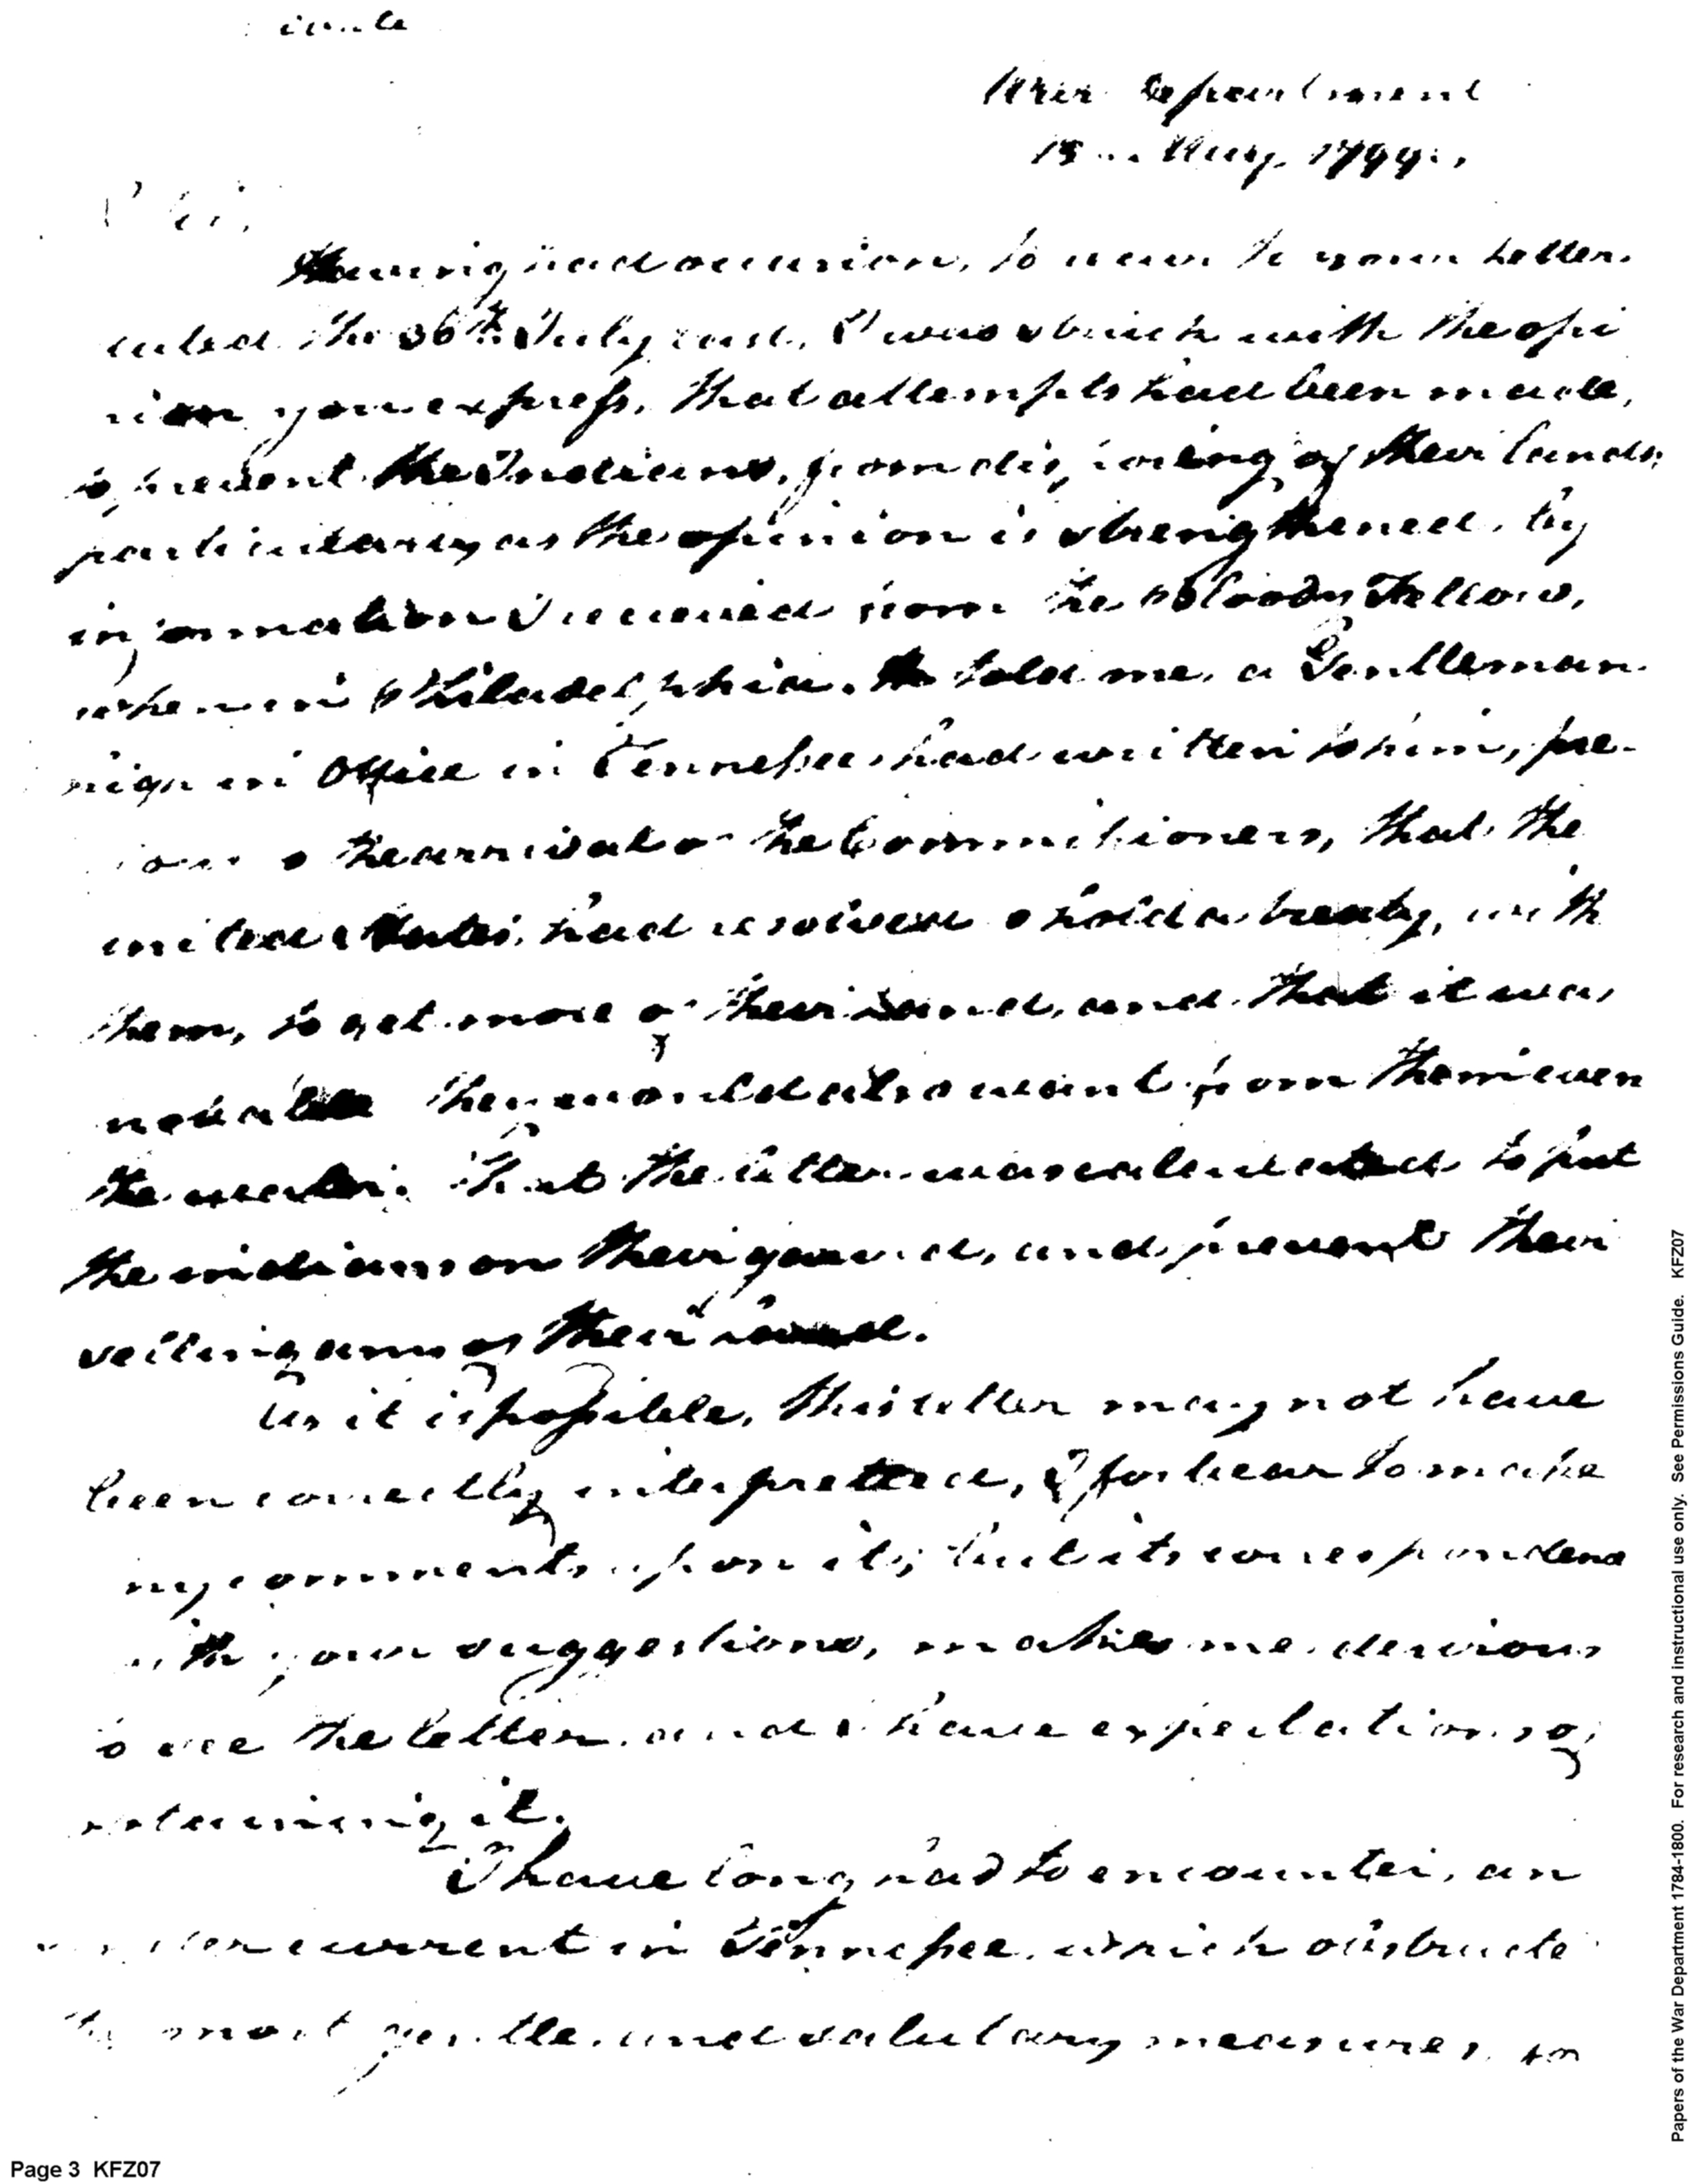 War Department
Aug. 1799.
Sir,
Having had occasion, to recur to your letter.
dated the 30th July last, I was struck with the opi
nion you express, that attempts had been made,
to prevent the Indians, from disposing of their lands,
particularly as the opinion is strengthened, by
information I received from the Bloody Fellow,
when in Philadelphia. He told me, a Gentleman
high in Office in Tennessee, had written to him, pre-
vious to the arrival of the Commissioners, that the
united States, had resolved to hold a treaty, with
them, to get more of their Land, and that it was
they would also want from them even
the water; that the letter was calculated to put
the indians on their guard, and prevent their
selling any of their land.
As it is possible, this letter may not have
been correctly interpretted, I forbear to make
my comments upon it; but its correspondence
with your suggestions, makes me desirous
to see the letter, and I have expectations of
obtaining it.
I have long had to encounter, an
under current in Tennessee, which obstructs
the most gentle, and salutary measures, 
Papers of the War Department 1784-1800. For research and instructional use only. See Permissions Guide. KFZ07
Page 3 KFZ07